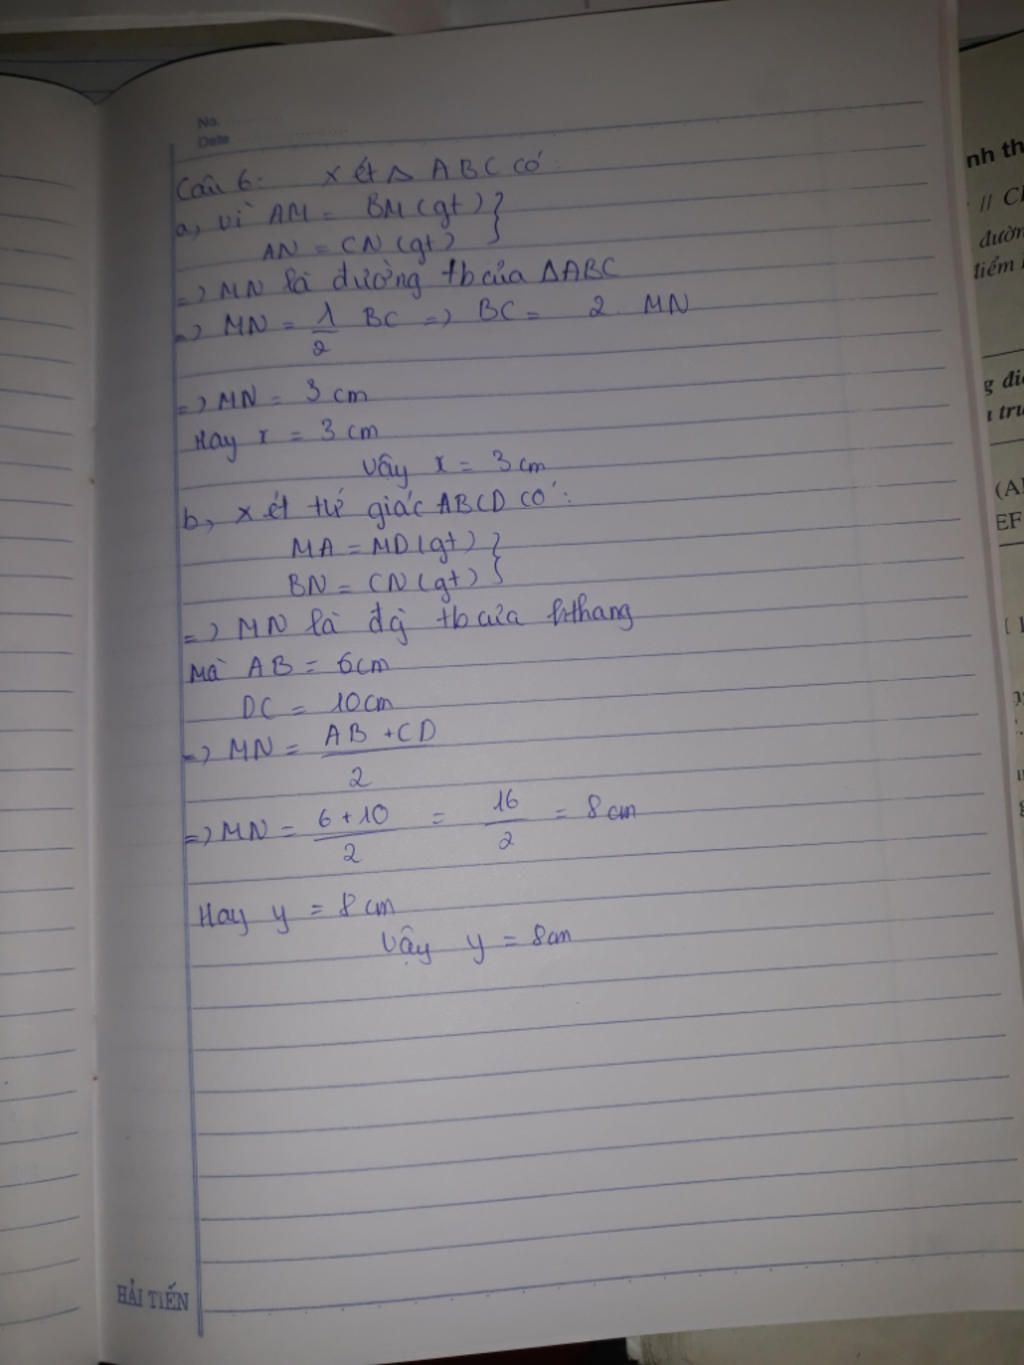 No.
Date
Câu 6: Xét △ ABC có:
a, Vì AM = BM (gt) }
AN = CN (gt) }
=> MN là đường tb của △ABC
=> MN = 1/2 BC => BC = 2. MN
=> MN = 3 cm
Hay x = 3 cm
Vậy x = 3 cm
b, Xét tứ giác ABCD có:
MA = MD (gt) }
BN = CN (gt) }
=> MN là đg tb của hthang
Mà AB = 6cm
DC = 10cm
=> MN = AB + CD / 2
=> MN = 6 + 10 / 2 = 16 / 2 = 8 cm
Hay y = 8 cm
Vậy y = 8cm
HẢI TIẾN
nh th
// C
đườn
điểm
g đi
tru
(A
EF